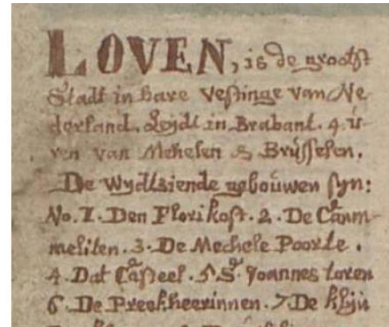 LOVEN, is de grootst
Stadt in hare Vestinge van Ne
derland. Leydt in Brabant. 4 ü-
ren van Mehelen & Brüsselen.
De Wydtsiende gebouwen syn:
No. 1. Den Florikost. 2. De Carm-
meliten. 3. De Mechele Poorte.
4. Dat Casteel. 5. St. Joannes toren
6. De Preekheerinnen. 7. De klijn